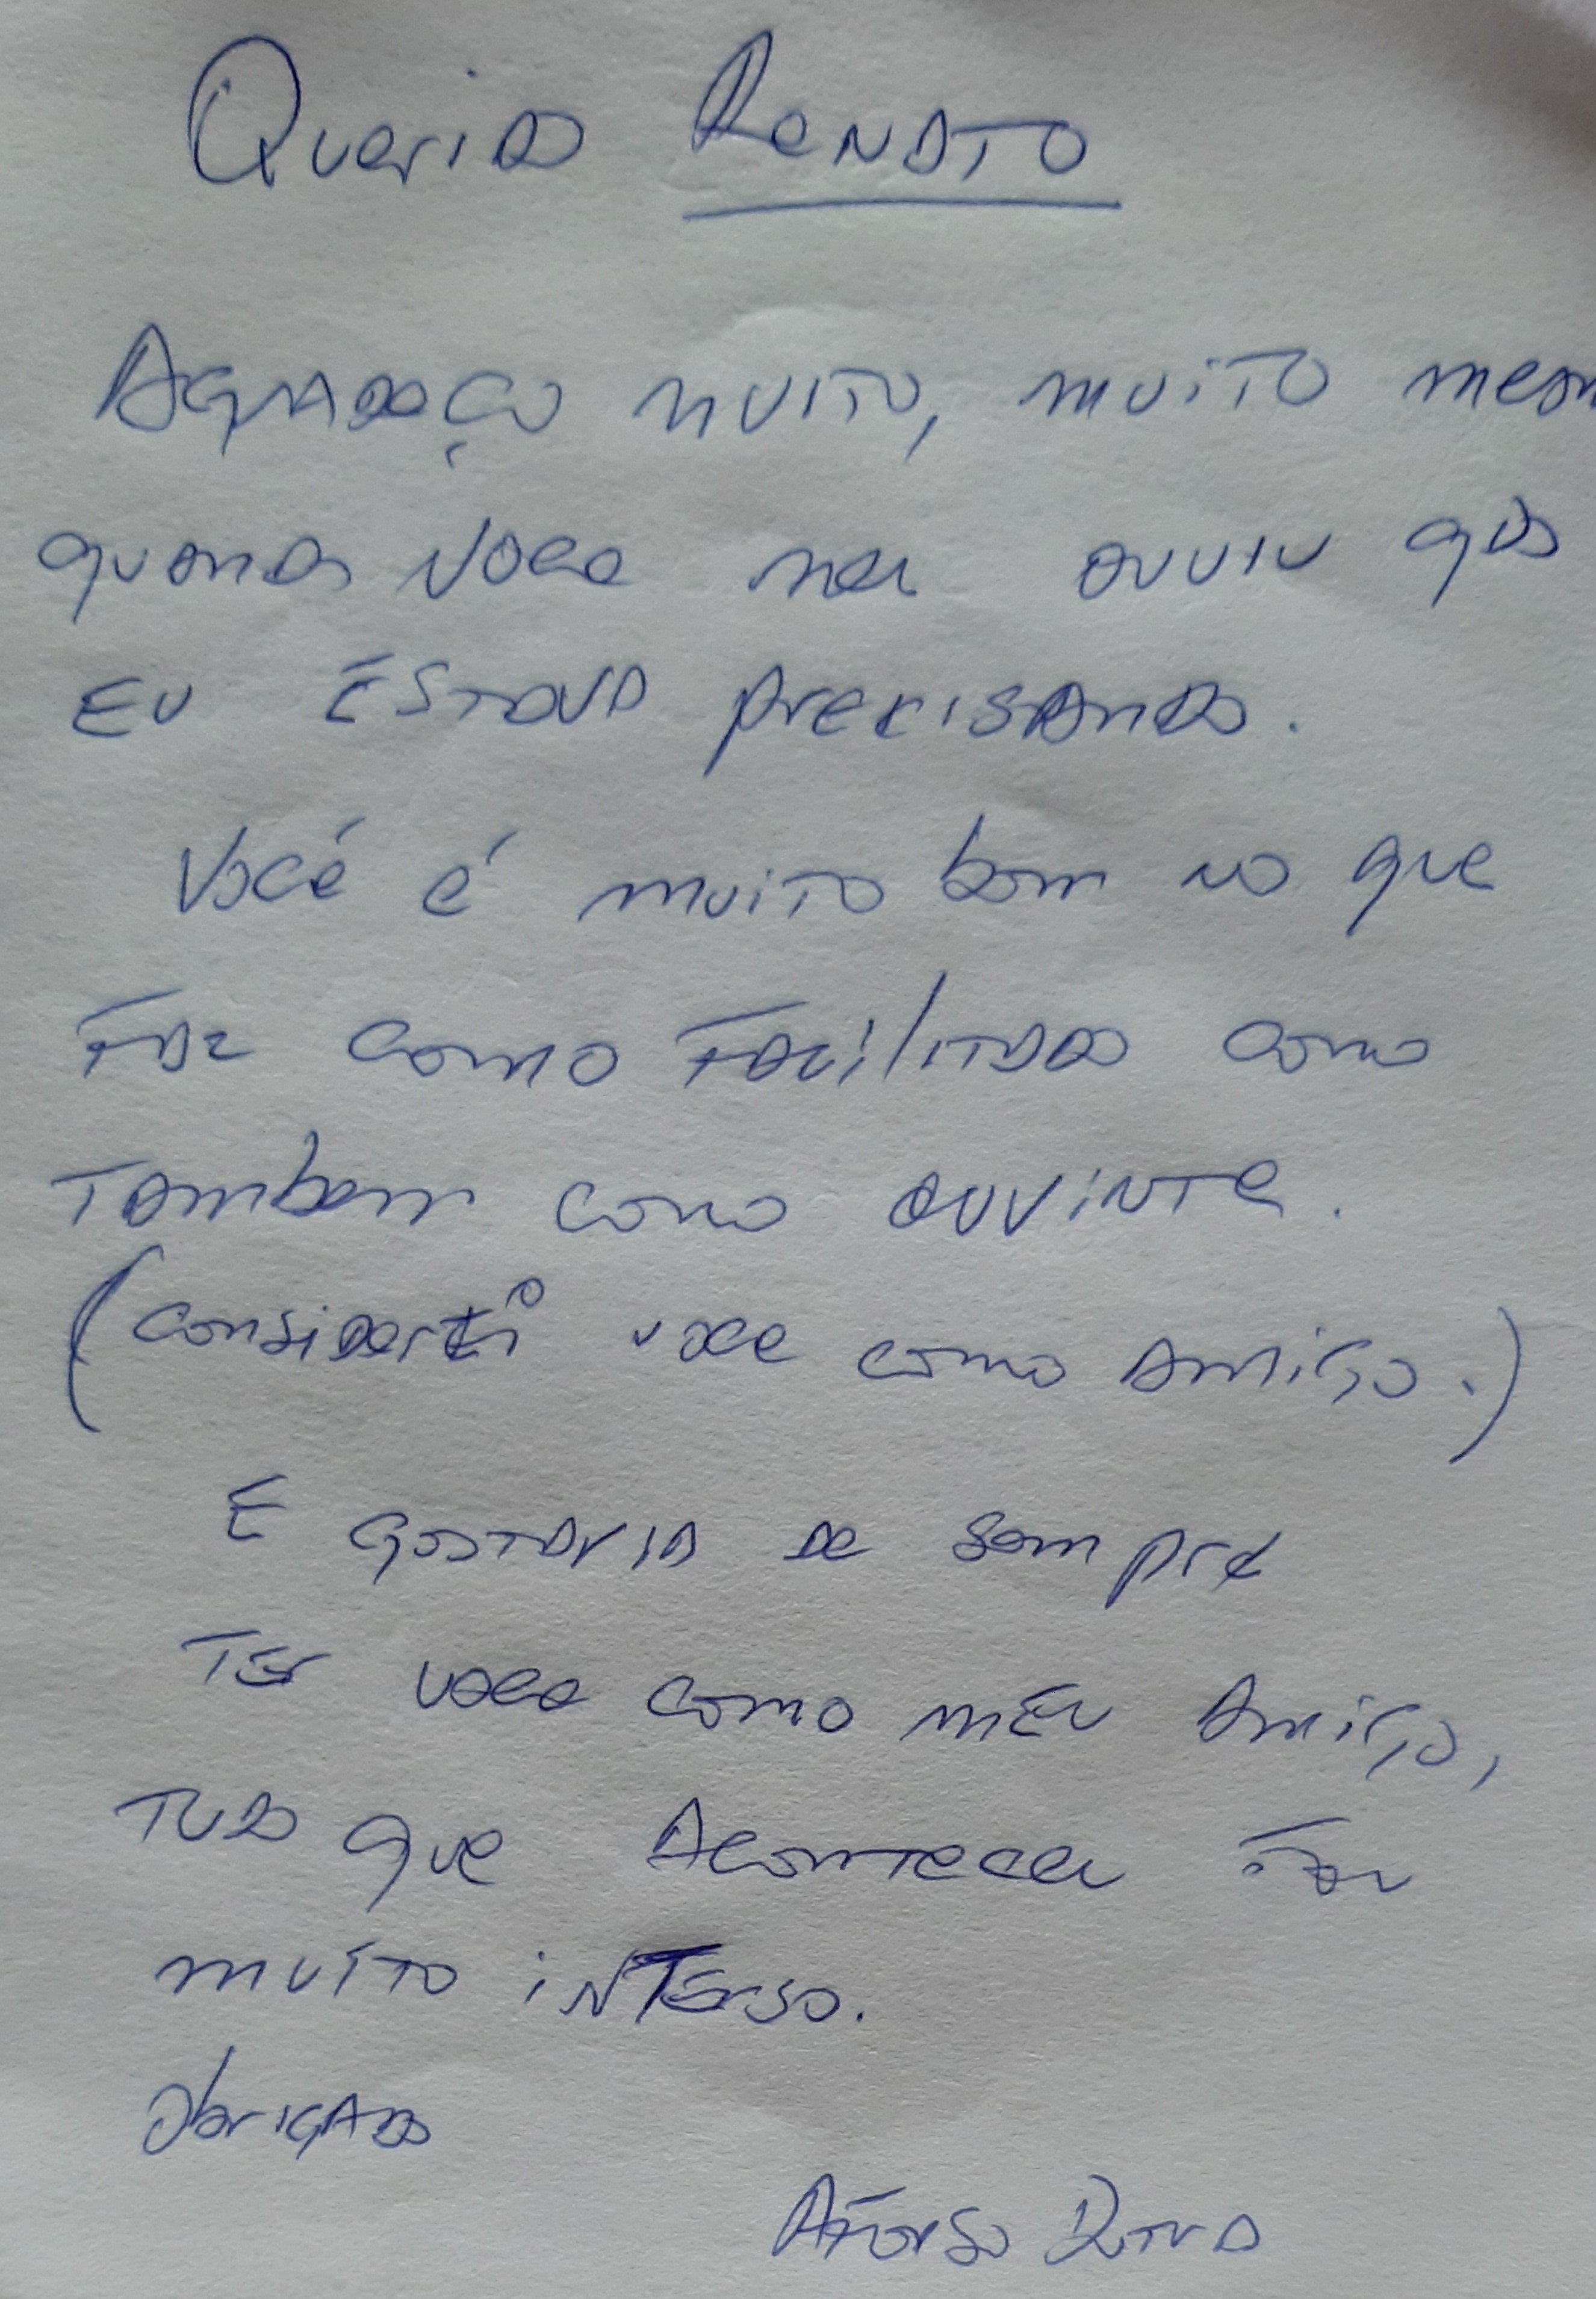 Querido Renato
Agradeço muito, muito mesm
quando voce me ouviu qdo
eu estava precisando.
Você é muito bom no que
faz como facilitado como
tambem como ouvinte.
(considero voce como amigo.)
E gostaria de sempre
ter voce como meu amigo,
tudo que aconteceu foi
muito intenso.
Obrigado
Afonso